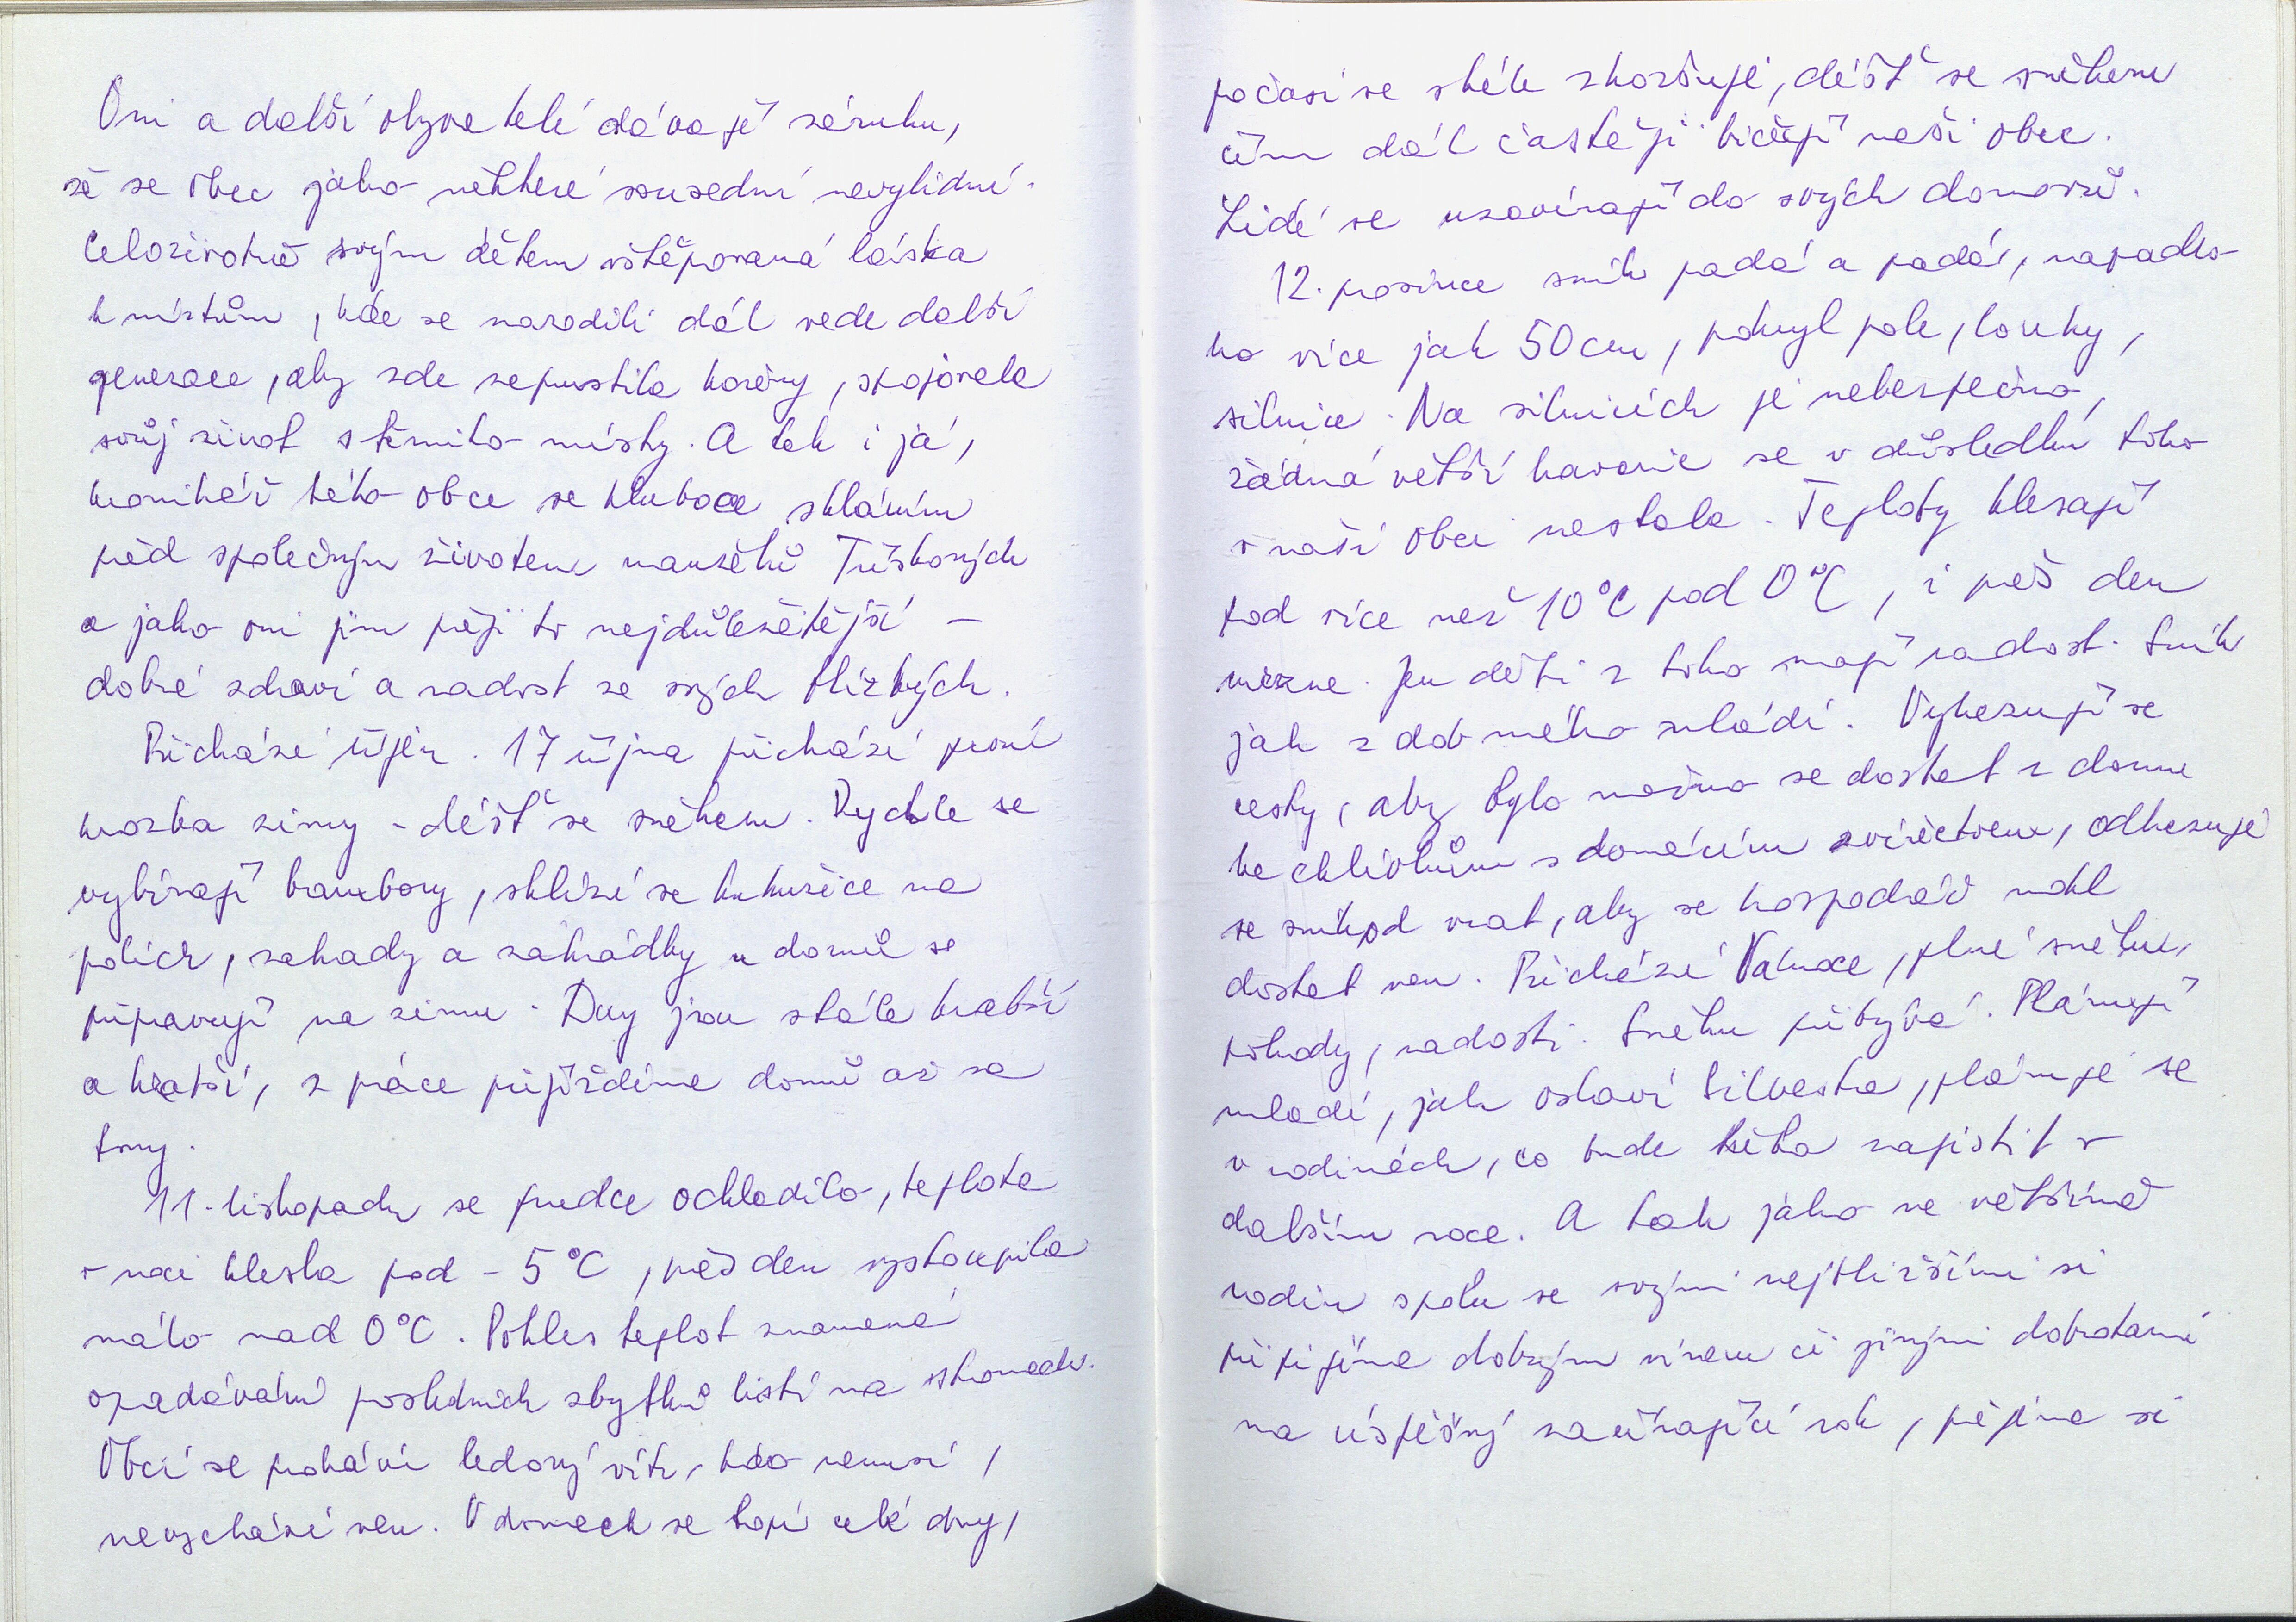 Oni a další obyvatelé dávají záruku,
že se obec jako některé sousední nevylidní.
Celoživotně svým dětem vštěpovaná láska
k místům, kde se narodili dál vede další
generace, aby zde zapustila kořeny, spojovala
svůj život s těmito místy. A tak i já,
kronikář této obce se hluboce skláním
před společným životem manželů Třískových
a jako oni jim přeji to nejdůležitější –
dobré zdraví a radost ze svých blízkých.
Přichází říjen. 17 října přichází první
hrozba zimy - déšť se sněhem. Rychle se
vybírají brambory, sklízí se kukuřice na
polích, zahady a zahrádky u domů se
připravují na zimu. Dny jsou stále kratší
a kratší, z práce přijíždíme domů až za
tmy.
11. listopadu se prudce ochladilo, teplota
v noci klesla pod - 5°C, přes den vystoupila
málo nad 0°C. Pokles teplot znamená
opadávání posledních zbytků listí na stromech.
Obcí se prohání ledový vítr, kdo nemusí,
nevychází ven. V domech se topí celé dny,
počasí se stále zhoršuje, déšť se sněhem
čím dál častěji bičují naši obec.
Lidé se uzavírají do svých domovů.
12. prosince sníh padá a padá, napadlo
ho více jak 50 cm, pokryl pole, louky,
silnice. Na silnicích je nebezpečno,
žádná větší havarie se v důsledku toho
v naší obci nestala. Teploty klesají
pod více než 10°C pod 0°C, i přes den
mrzne. Jen děti z toho mají radost. Sníh
jak z dob mého mládí. Vyhrzují se
cesty, aby bylo možno se dostat z domu
ke chlívkům s domácím zvířectvem, odhrzuje
se sníh od vrat, aby se hospodář mohl
dostat ven. Přichází Vánoce, plné sněhu,
pohody, radosti. Sněhu přibývá. Plánují
mladí, jak oslaví Silvestra, plánuje se
v rodinách, co bude třeba zajistit v
dalším roce. A tak jako ve většině
rodin spolu se svými nejbližšími si
připijíme dobrým vínem či jinými dobrotami
na úspěšný začínající rok, přejíme si